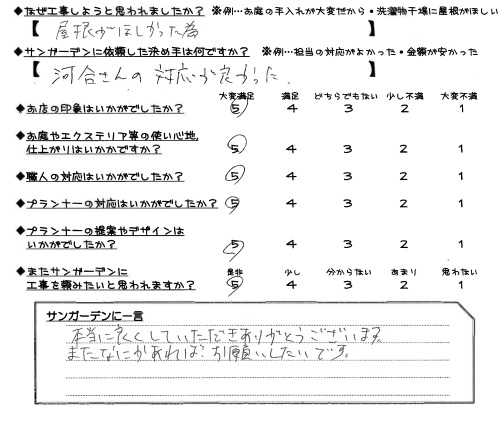 ◆なぜ工事しようと思われましたか? ※例…お庭の手入れが大変だから・洗濯物干場に屋根がほしい
【 屋根がほしかった為 】
◆サンガーデンに依頼した決め手は何ですか? ※例…担当の対応がよかった・金額が安かった
【 河合さんの対応が良かった。 】
大変満足 満足 どちらでもない 少し不満 大変不満
◆お店の印象はいかがでしたか? 5 4 3 2 1
◆お庭やエクステリア等の使い心地、
仕上がりはいかかですか? 5 4 3 2 1
◆職人の対応はいかがでしたか? 5 4 3 2 1
◆プランナーの対応はいかがでしたか? 5 4 3 2 1
◆プランナーの提案やデザインは
いかがでしたか? 5 4 3 2 1
是非 少し 分からない あまり 思わない
◆またサンガーデンに
工事を頼みたいと思われますか? 5 4 3 2 1
サンガーデンに一言
本当に良くしていただきありがとうございます。
またなにかあれば お願いしたいです。